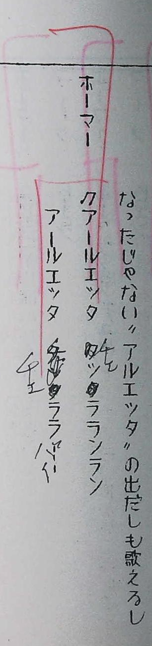 なったじゃない〝アルエッタ〟の出だしも歌えるし
ホーマー 〽アールエッタ チェッタラランラン
アールエッタ チェ ララバイ